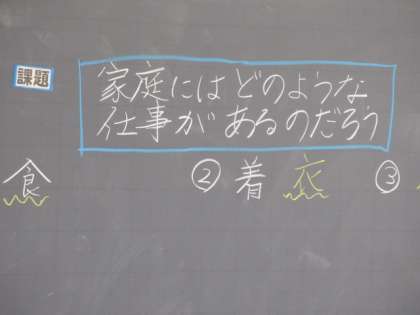 課題
家庭にはどのような
仕事があるのだろう
食 ② 着 衣 ③